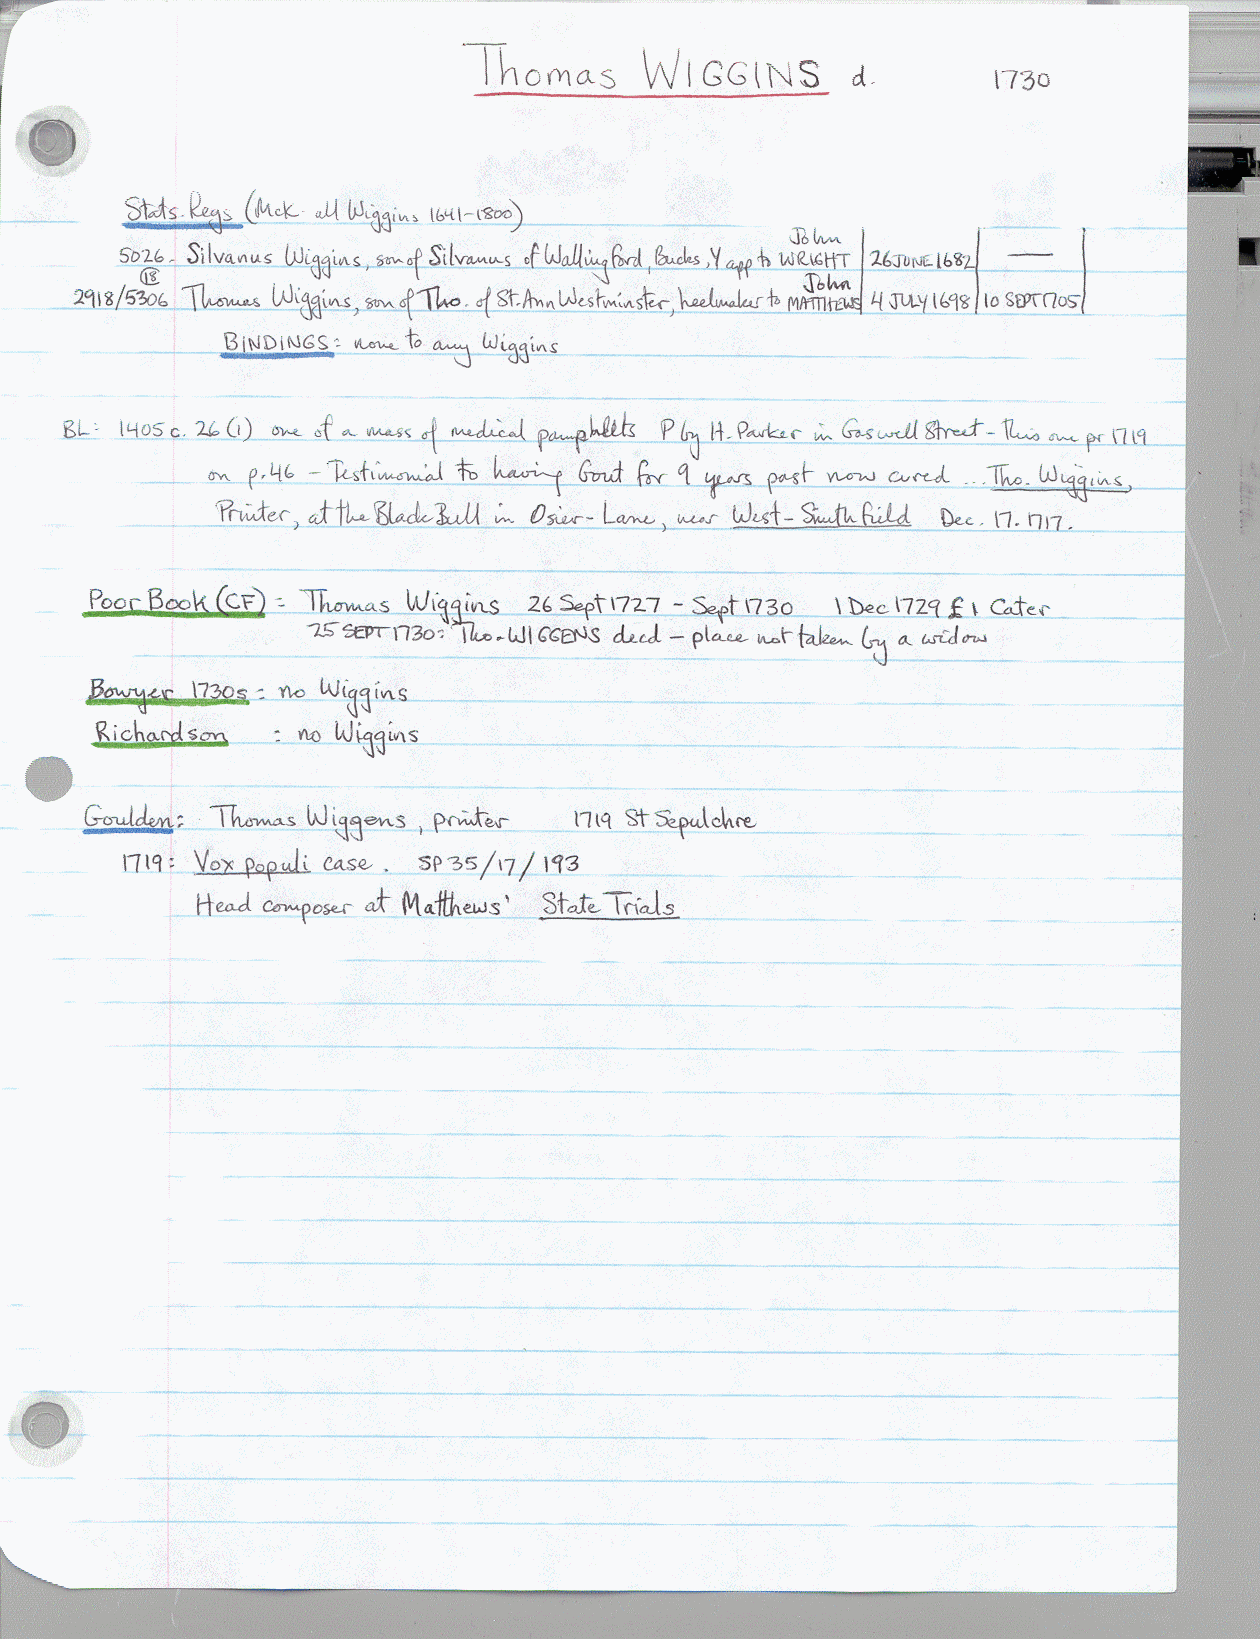 Thomas WIGGINS d. 1730
Stats. Regs (McK. all Wiggins 1641-1800)
5026. Silvanus Wiggins, son of Silvanus of Wallingford, Bucks, Y app to John WRIGHT 26 JUNE 1682 —
18
2918/5306 Thomas Wiggins, son of Tho. of St. Ann Westminster, heelmaker to John MATTHEWS 4 JULY 1698 10 SEPT 1705
BINDINGS: none to any Wiggins
BL: 1405 c. 26 (1) one of a mass of medical pamphlets P by H. Parker in Goswell Street - this one pr 1719
on p. 46 - Testimonial to having Gout for 9 years past now cured ... Tho. Wiggins,
Printer, at the Black Bull in Osier-Lane, near West-Smithfield Dec. 17. 1717.
Poor Book (CF) = Thomas Wiggins 26 Sept 1727 - Sept 1730 1 Dec 1729 £1 Cater
25 SEPT 1730: Tho. WIGGENS decd - place not taken by a widow
Bowyer 1730s = no Wiggins
Richardson : no Wiggins
Goulden: Thomas Wiggens, printer 1719 St Sepulchre
1719: Vox populi case. SP 35/17/193
Head composer at Matthews' State Trials